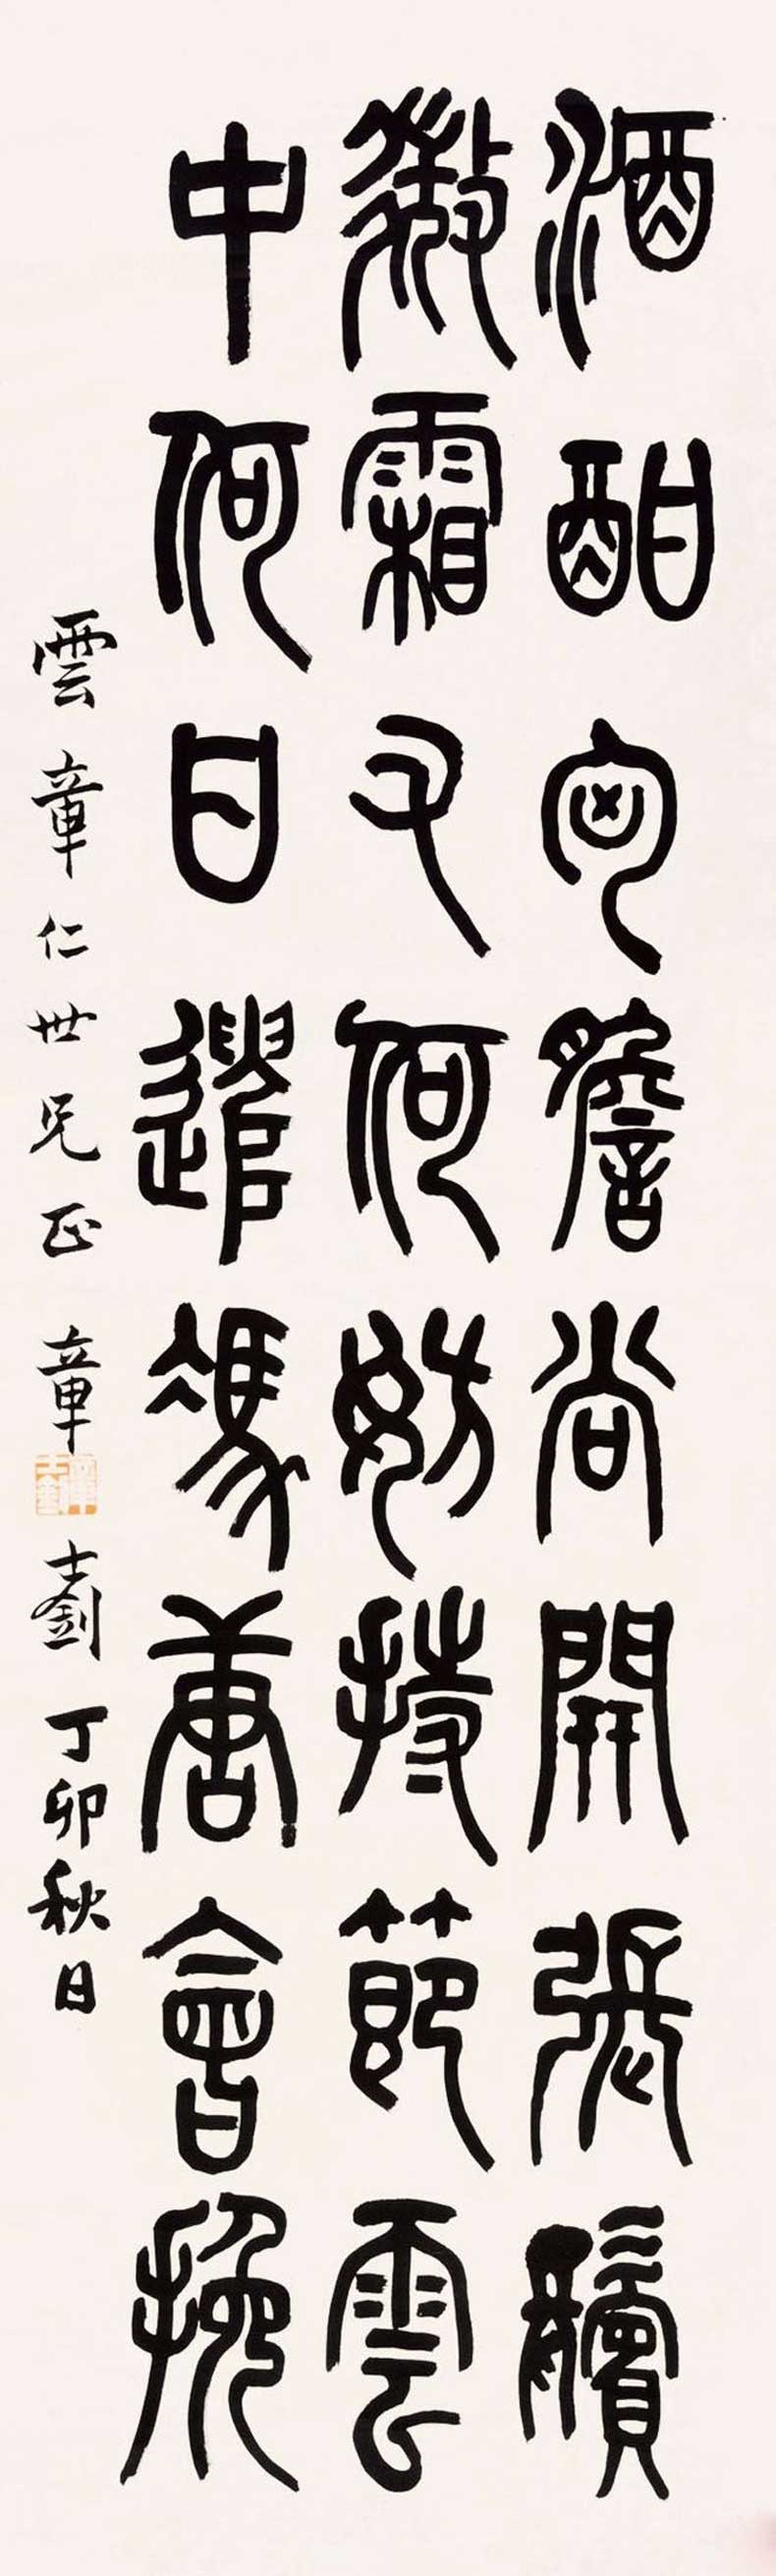 酒酣胷膽尚開張鬢
微霜又何妨持節雲
中何日遣馮唐會挽
雲章仁世兄正 章士釗 丁卯秋日
章士釗